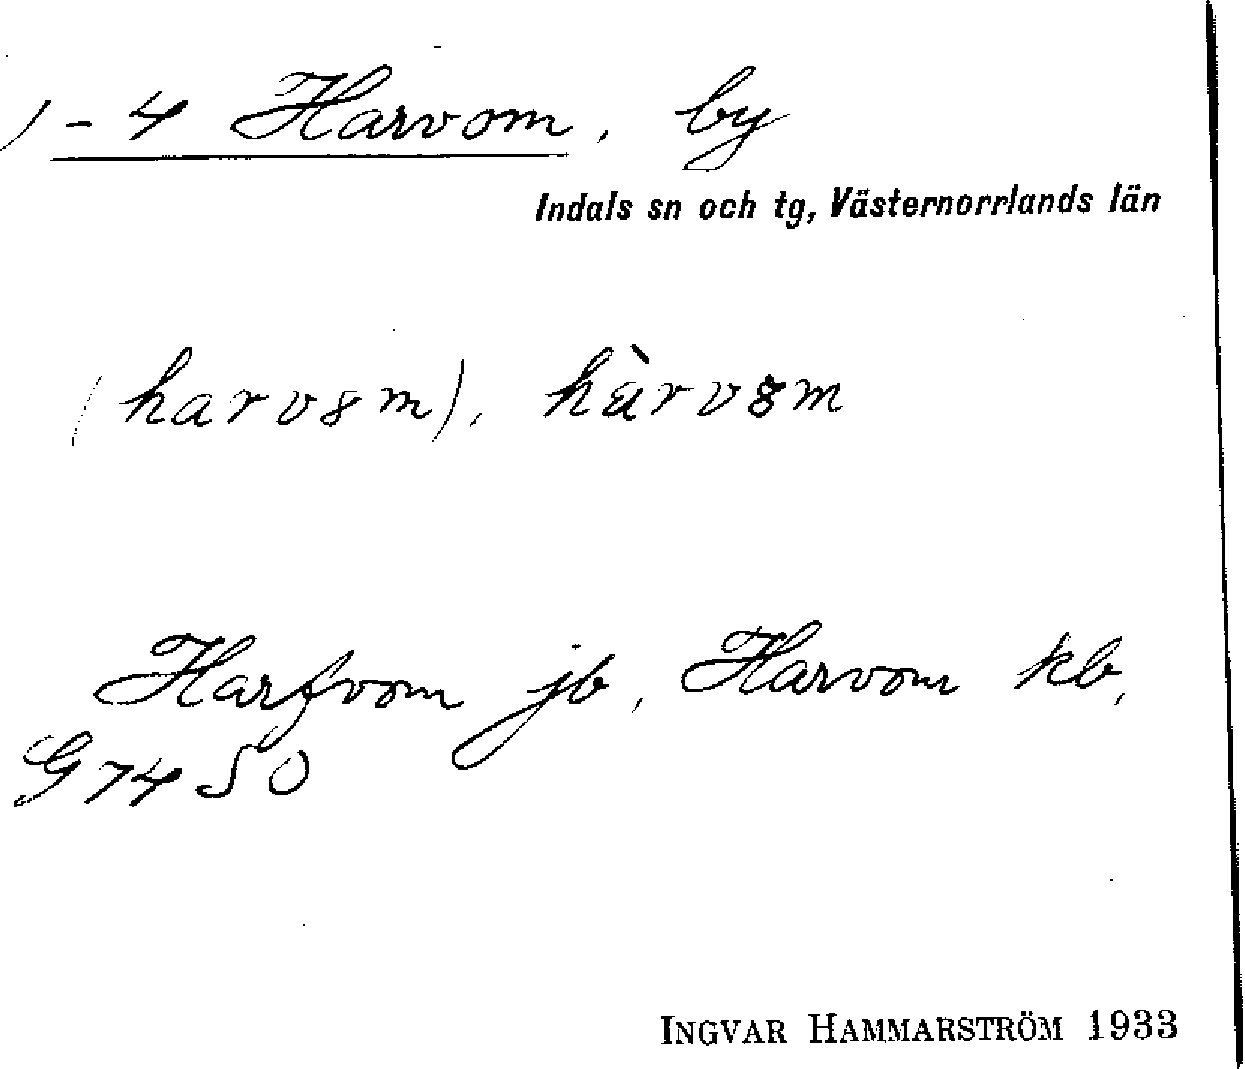 1-4 Harvom, by
Indals sn och tg, Västernorrlands län
(harv8m), hàrv8m
Harfvom jb, Harvom kb,
G7450
INGVAR HAMMARSTRÖM 1933